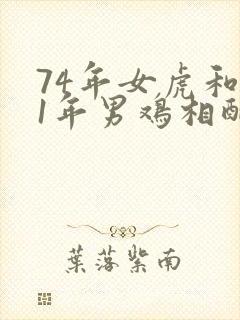 74年女虎和
1年男鸡相配
葉落紫南